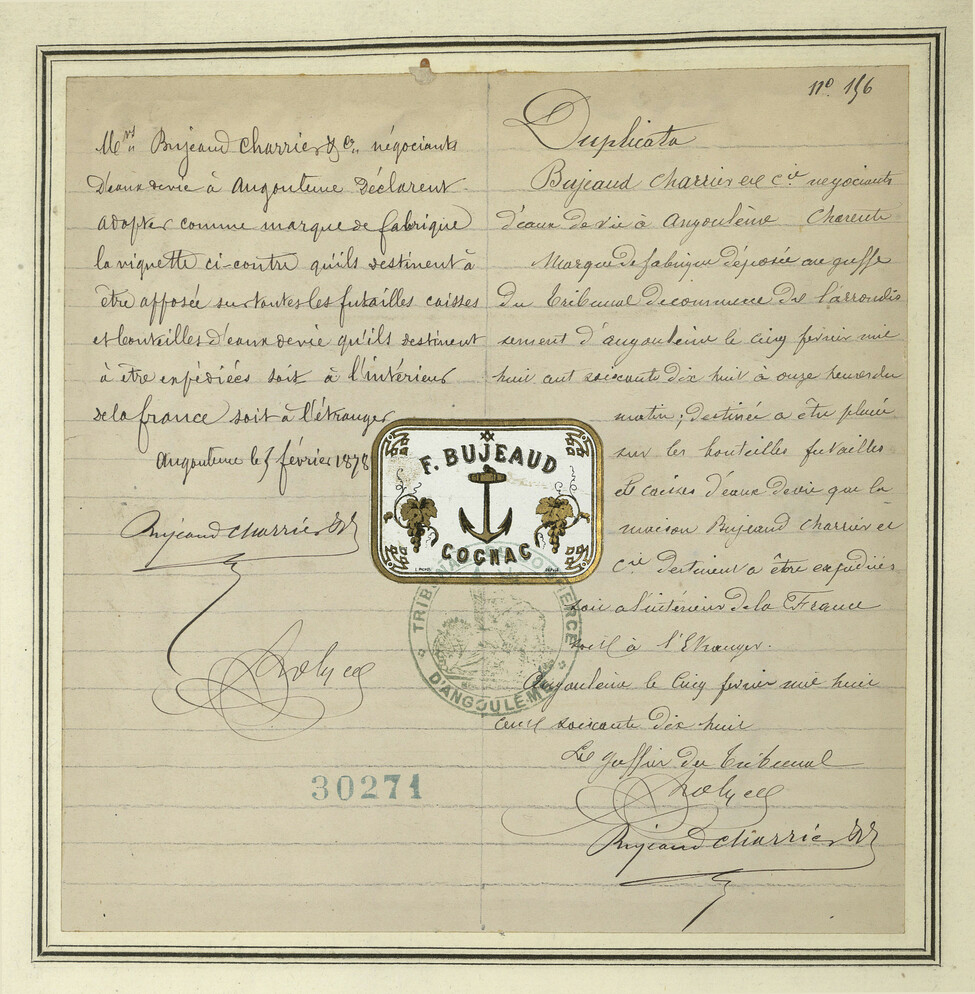 Mrs Bujeaud Charrier & Cie négociants
D'eaux devie à Angoulème Déclarent
adopter comme marque de fabrique
la vignette ci-contre qu'ils destinent à
être apposée sur toutes les futailles caisses
et bouteilles d'eaux devie qu'ils destinent
à être expédiées soit à l'intérieur
de la france soit à l'étranger
Angoulème le 5 février 1878
Bujeaud Charrier & Cie
30271
F. BUJEAUD
COGNAC
TRIBUNAL DE COMMERCE
D'ANGOULÊME
no. 156
Duplicata
Bujeaud Charrier et Cie négociants
d'eaux de vie à Angoulème Charente
Marque de fabrique déposée au greffe
du tribunal de commerce de l'arrondis
sement d'angoulème le cinq février mil
huit cent soixante dix huit à onze heures du
matin; destinée a être placée
sur les bouteilles futailles
et caisses d'eaux devie que la
maison Bujeaud Charrier et
Cie destinent a être expédiées
soit a l'intérieur de la France
soit à l'Etranger.
Angoulème le cinq fevrier mil huit
cent soixante dix huit
Le greffier du tribunal
Bujeaud Charrier & Cie